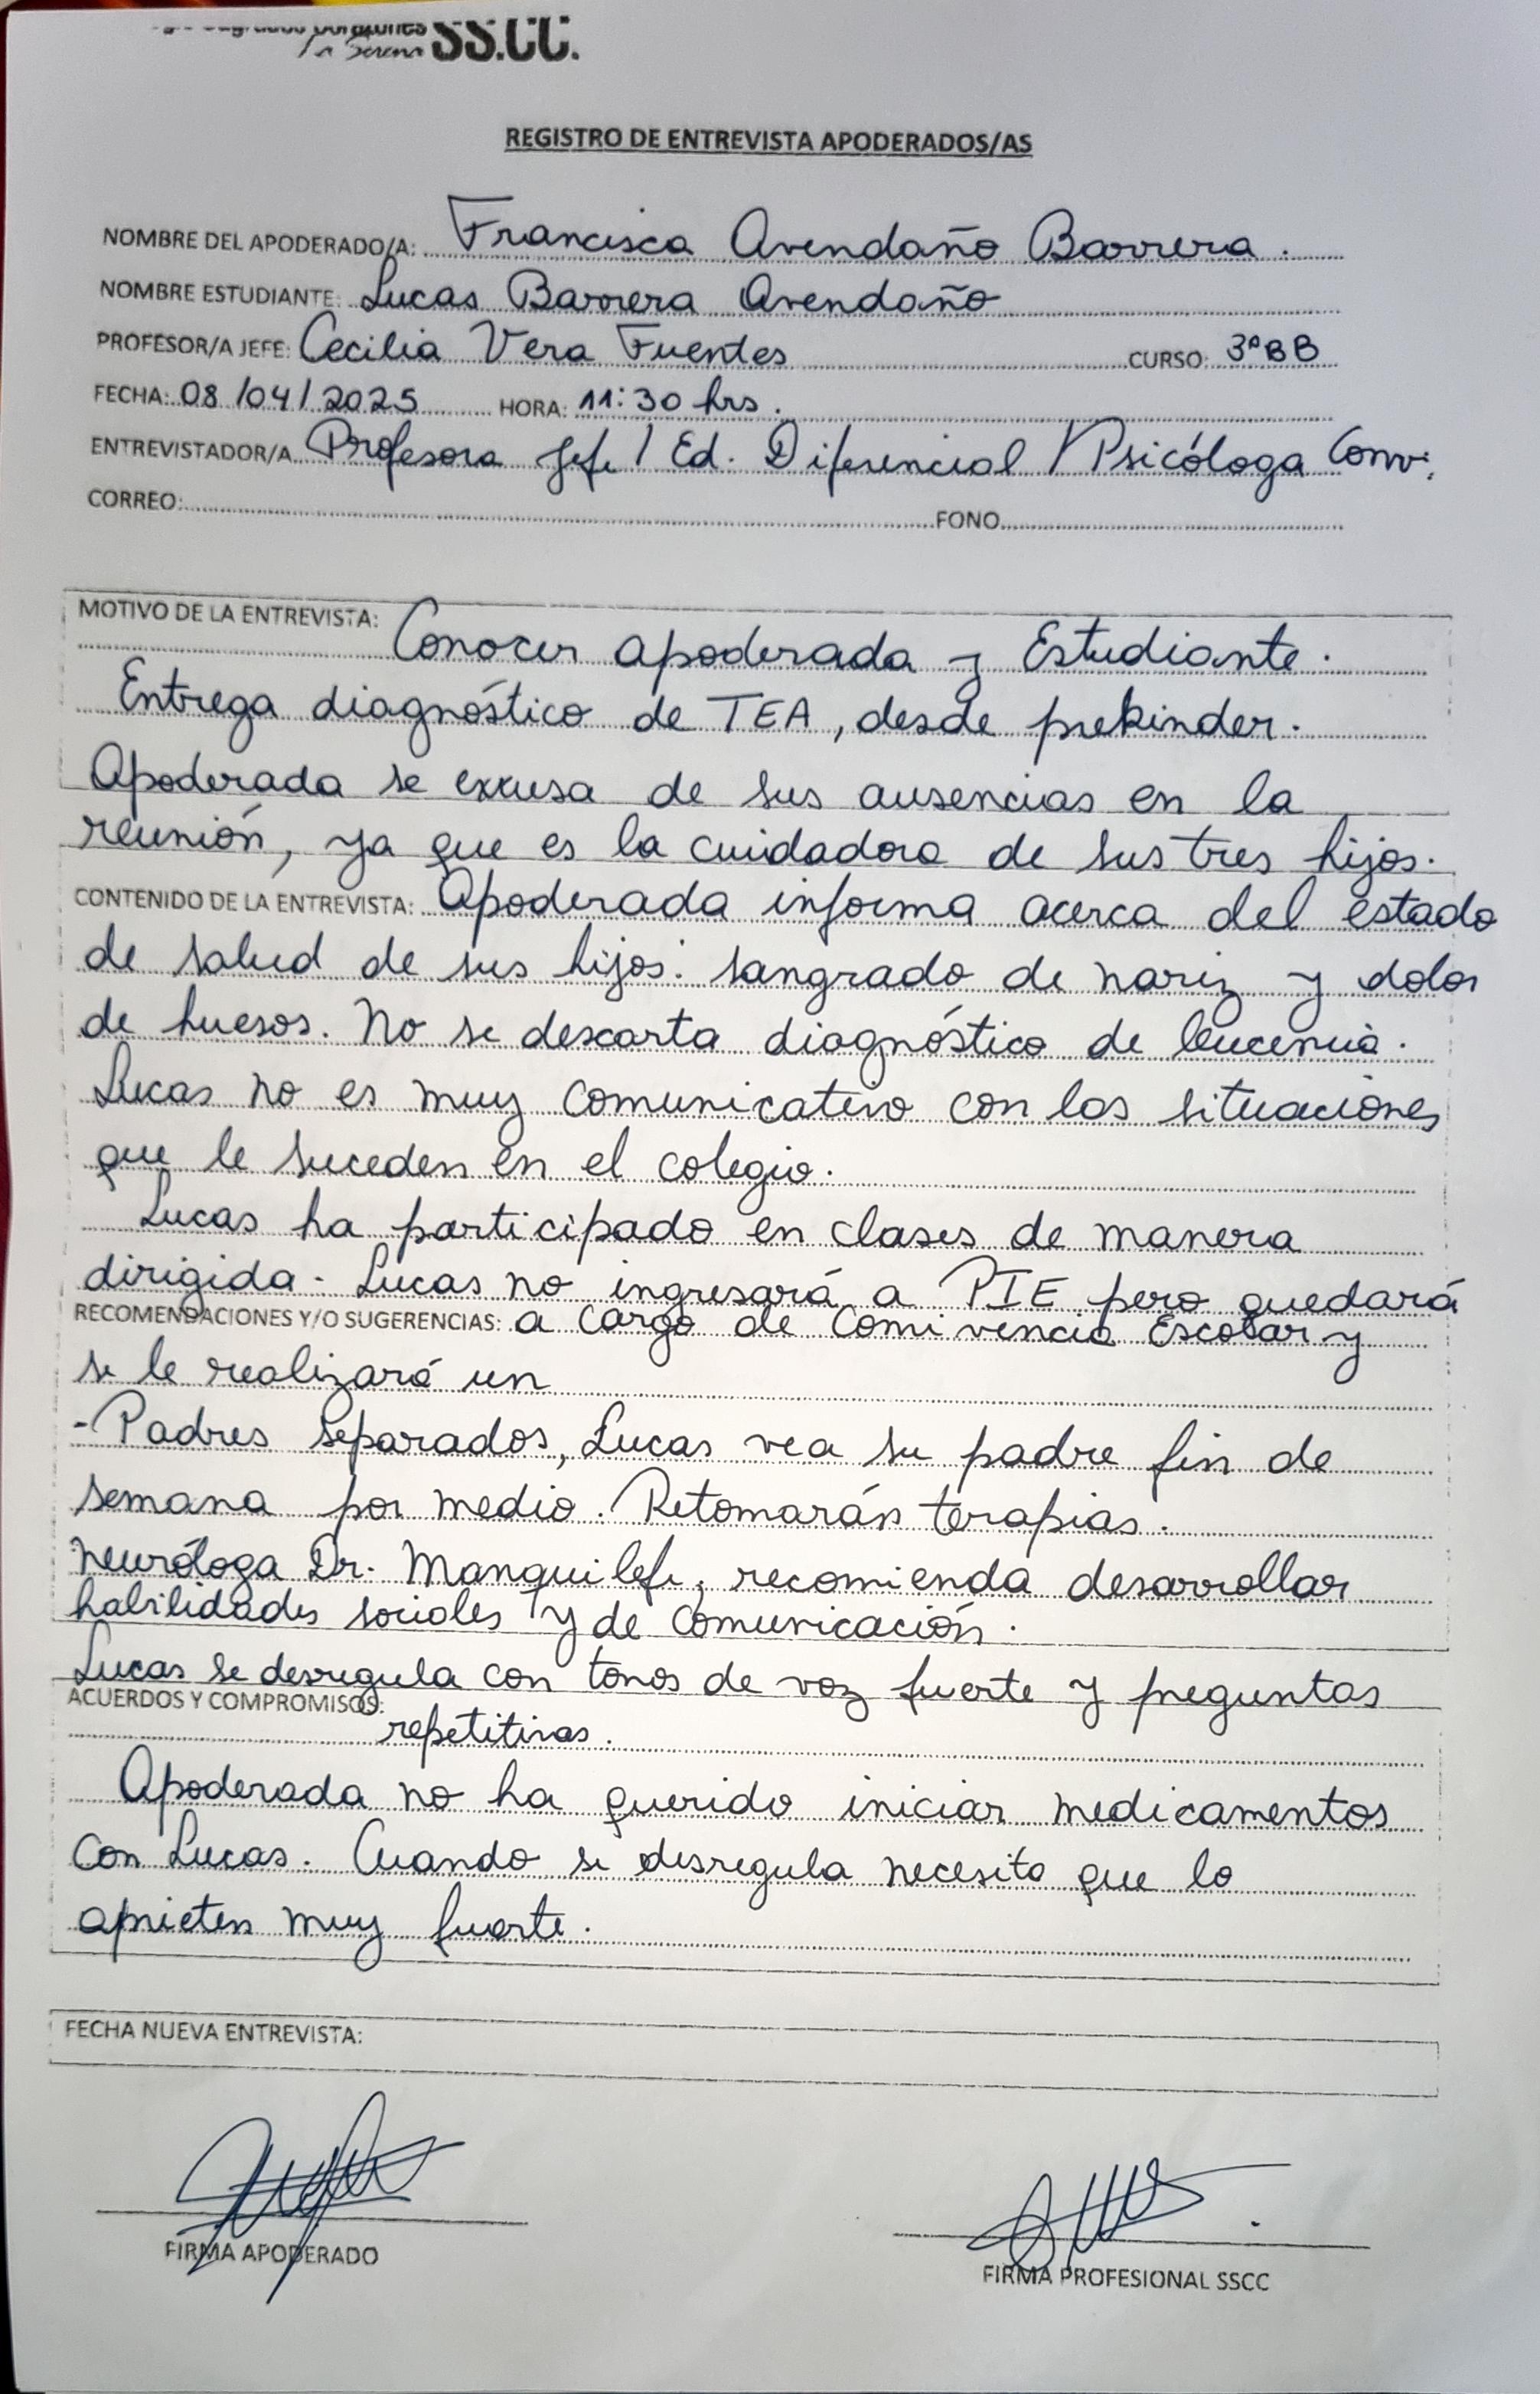 Sagrados Corazones
La Serena SS.CC.
REGISTRO DE ENTREVISTA APODERADOS/AS
NOMBRE DEL APODERADO/A: Francisca Avendaño Barrera.
NOMBRE ESTUDIANTE: Lucas Barrera Avendaño
PROFESOR/A JEFE: Cecilia Vera Fuentes CURSO: 3°BB
FECHA: 08/04/2025 HORA: 11:30 hrs.
ENTREVISTADOR/A Profesora Jefe / Ed. Diferencial / Psicóloga Conv.
CORREO: FONO
MOTIVO DE LA ENTREVISTA: Conocer apoderada y Estudiante.
Entrega diagnóstico de TEA, desde prekinder.
Apoderada se excusa de sus ausencias en la
reunión, ya que es la cuidadora de sus tres hijos.
CONTENIDO DE LA ENTREVISTA: Apoderada informa acerca del estado
de salud de sus hijos: sangrado de nariz y dolor
de huesos. No se descarta diagnóstico de leucemia.
Lucas no es muy comunicativo con las situaciones
que le suceden en el colegio.
Lucas ha participado en clases de manera
dirigida - Lucas no ingresará a PIE pero quedará
RECOMENDACIONES Y/O SUGERENCIAS: a cargo de Convivencia Escolar y
se le realizará un
- Padres separados, Lucas ve a su padre fin de
semana por medio. Retomarán terapias.
Neuróloga Dr. Manquilefe, recomienda desarrollar
habilidades sociales y de comunicación.
Lucas se desregula con tonos de voz fuerte y preguntas
ACUERDOS Y COMPROMISOS:
repetitivas.
Apoderada no ha querido iniciar medicamentos
con Lucas. Cuando se desregula necesita que lo
aprieten muy fuerte.
FECHA NUEVA ENTREVISTA:
FIRMA APODERADO
FIRMA PROFESIONAL SSCC